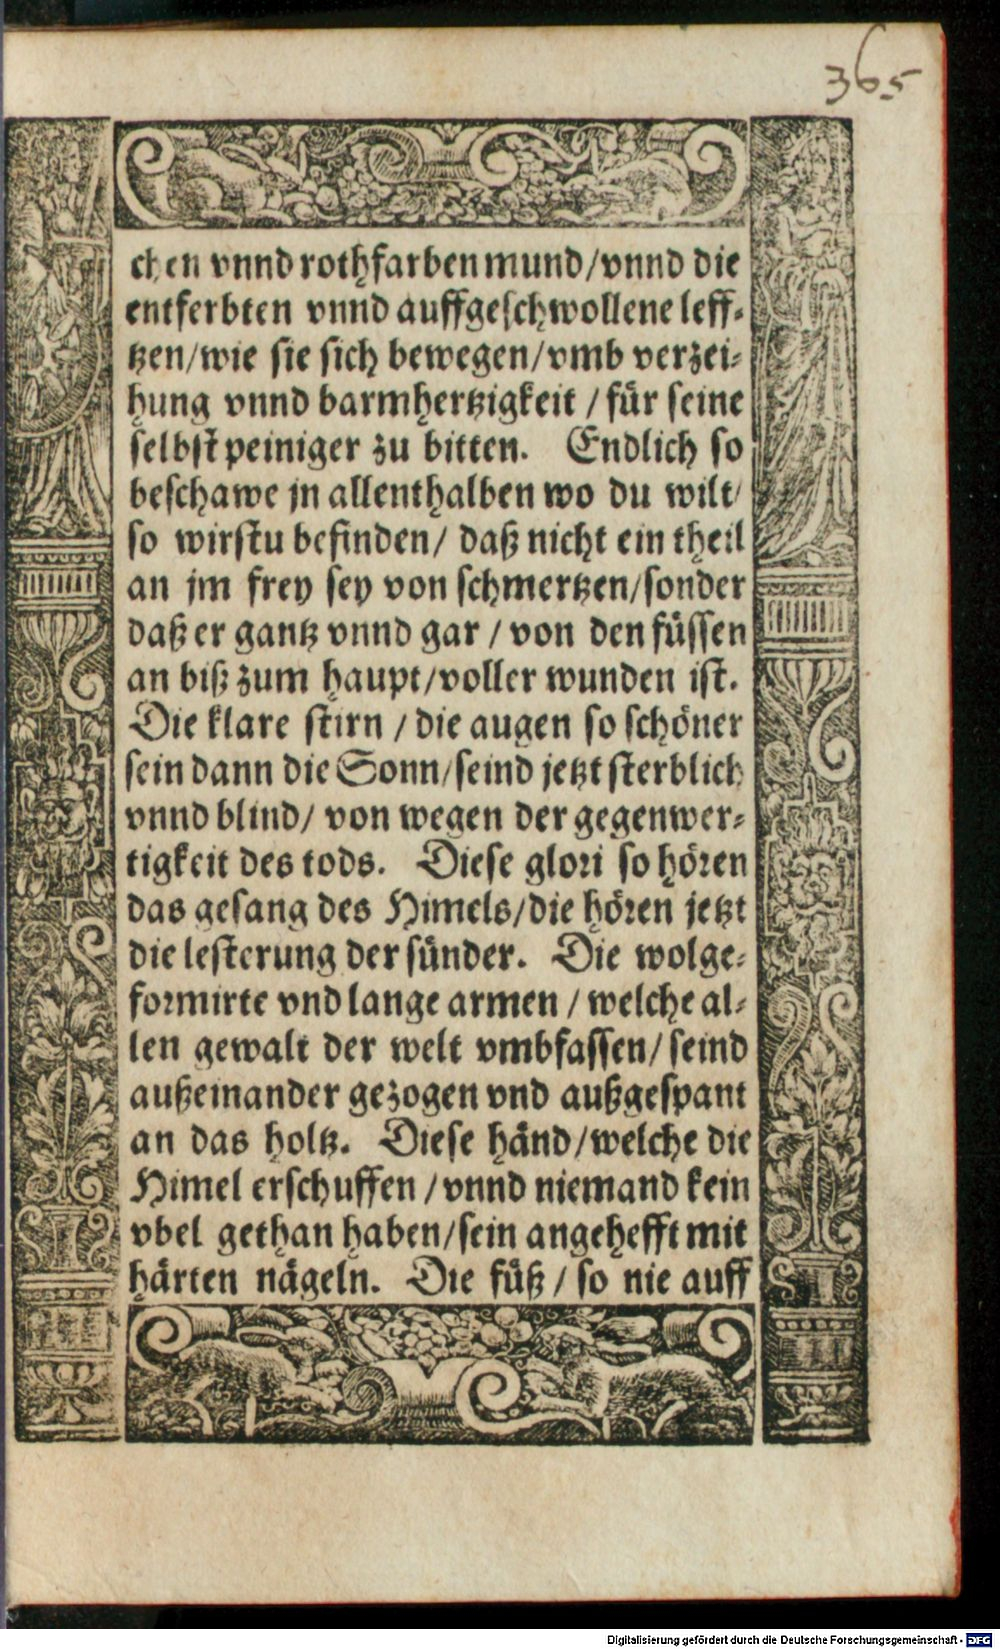 365
chen vnnd rothfarben mund/vnnd die
entferbten vnnd auffgeschwollene leff-
tzen/wie sie sich bewegen/vmb verzei-
hung vnnd barmhertzigkeit / für seine
selbst peiniger zu bitten. Endlich so
beschawe jn allenthalben wo du wilt/
so wirstu befinden/ daß nicht ein theil
an jm frey sey von schmertzen/sonder
daß er gantz vnnd gar / von den füssen
an biß zum haupt/voller wunden ist.
Die klare stirn / die augen so schöner
sein dann die Sonn/seind jetzt sterblich
vnnd blind/ von wegen der gegenwer-
tigkeit des tods. Diese glori so hören
das gesang des Himels/die hören jetzt
die lesterung der sünder. Die wolge-
formirte vnd lange armen / welche al-
len gewalt der welt vmbfassen/ seind
außeinander gezogen vnd außgespant
an das holtz. Diese händ/welche die
Himel erschuffen / vnnd niemand kein
vbel gethan haben/sein angehefft mit
härten nägeln. Die füß / so nie auff
Digitalisierung gefördert durch die Deutsche Forschungsgemeinschaft - DFG